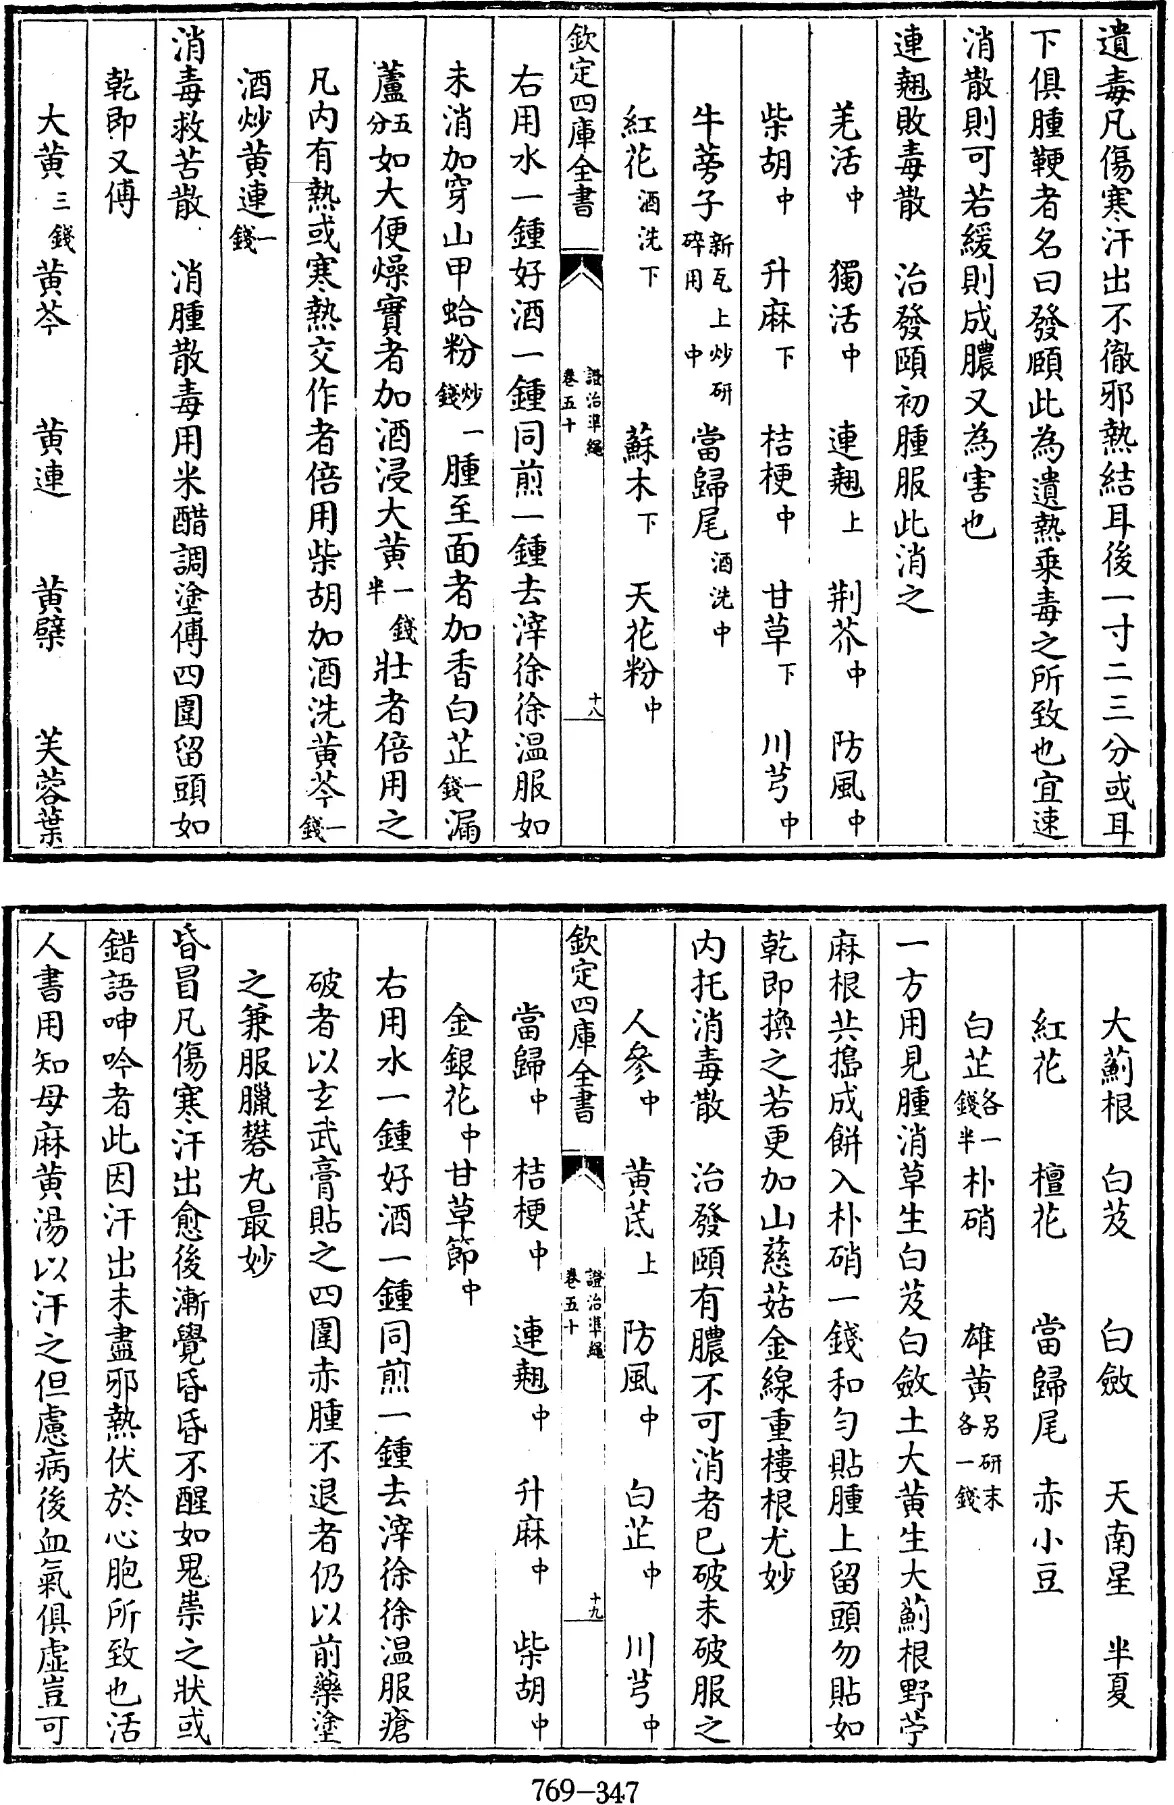 遺毒凡傷寒汗出不徹邪熱結耳後一寸二三分或耳
下俱腫鞕者名曰發頤此為遺熱乗毒之所致也宜速
消散則可若緩則成膿又為害也
連翹敗毒散　治發頤初腫服此消之
羌活中　獨活中　連翹上　荆芥中　防風中
柴胡中　升麻下　桔梗中　甘草下　川芎中
牛蒡子新瓦上炒研碎用中　當歸尾酒洗中
紅花酒洗下　蘇木下　天花粉中
欽定四庫全書　證治準繩卷五十　十八
右用水一鍾好酒一鍾同煎一鍾去滓徐徐温服如
未消加穿山甲蛤粉炒一錢腫至面者加香白芷一錢漏
蘆五分如大便燥實者加酒浸大黄一錢半壯者倍用之
凡内有熱或寒熱交作者倍用柴胡加酒洗黄芩一錢
酒炒黄連一錢
消毒救苦散　消腫散毒用米醋調塗傅四圍留頭如
乾即又傅
大黄三錢　黄芩　黄連　黄檗　芙蓉葉
大薊根　白芨　白斂　天南星　半夏
紅花　檀花　當歸尾　赤小豆
白芷各一錢半　朴硝　雄黄另研末各一錢
一方用見腫消草生白芨白斂土大黄生大薊根野苧
麻根共搗成餅入朴硝一錢和匀貼腫上留頭勿貼如
乾即換之若更加山慈菇金線重樓根尤妙
内托消毒散　治發頤有膿不可消者已破未破服之
人參中　黄芪上　防風中　白芷中　川芎中
欽定四庫全書　證治準繩卷五十　十九
當歸中　桔梗中　連翹中　升麻中　柴胡中
金銀花中　甘草節中
右用水一鍾好酒一鍾同煎一鍾去滓徐徐温服瘡
破者以玄武膏貼之四圍赤腫不退者仍以前藥塗
之兼服臘礬丸最妙
昏冒凡傷寒汗出愈後漸覺昏昏不醒如鬼祟之狀或
錯語呻吟者此因汗出未盡邪熱伏於心胞所致也活
人書用知母麻黄湯以汗之但慮病後血氣俱虛豈可
769-347